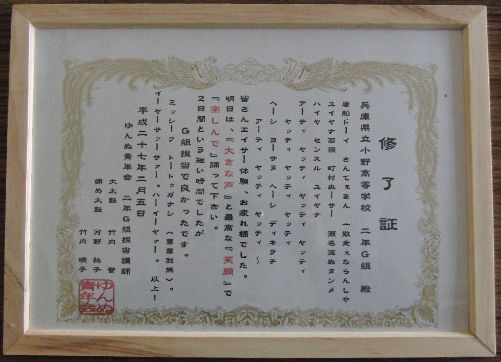 修了証
兵庫県立小野高等学校 二年G組 殿
唐船ドーイ さんてぃまん 一散走ぇならんしや
ユイヤナ若狭 町村ぬサー 瀬名波ぬタンメ
ハイヤ センスル ユイヤナ
アーティ ヤッティ ヤッティ ヤッティ
ヤッティ ヤッティ ヤッティ
ヘーシ ヨーサヌ ヘーシ ディキラチ
アーティ ヤッティ ヤッティ ～
皆さんエイサー体験、お疲れ様でした。
明日は、『大きな声』と最高な『笑顔』で
『楽しんで』踊って下さい。
2日間という短い時間でしたが
G組担当で良かったです。
ミッシーク トートゥガナシ
イーヤーサッサァー。ハーイーヤァー。 以上！
平成二十七年二月五日
ゆんぬ青年会 二年G組担当講師
大太鼓 竹内
締め太鼓 河野 祐子
竹内 暁子
ゆんぬ青年会